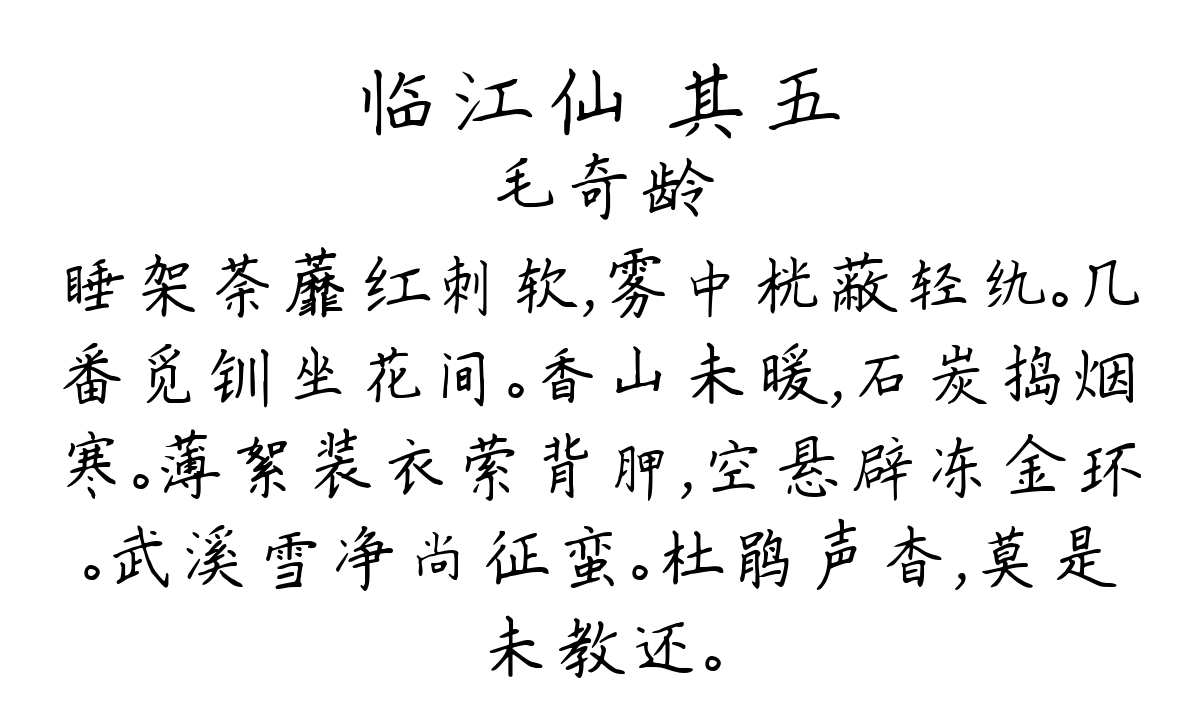 临江仙 其五
毛奇龄
睡架荼蘼红刺软,雾中桄蔽轻纨。几
番觅钏坐花间。香山未暖,石炭捣烟
寒。薄絮装衣萦背胛,空悬辟冻金环
。武溪雪净尚征蛮。杜鹃声杳,莫是
未教还。